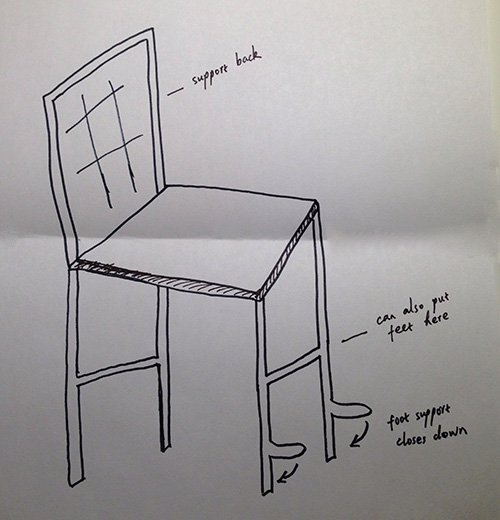 support back
can also put
feet here
foot support
closes down